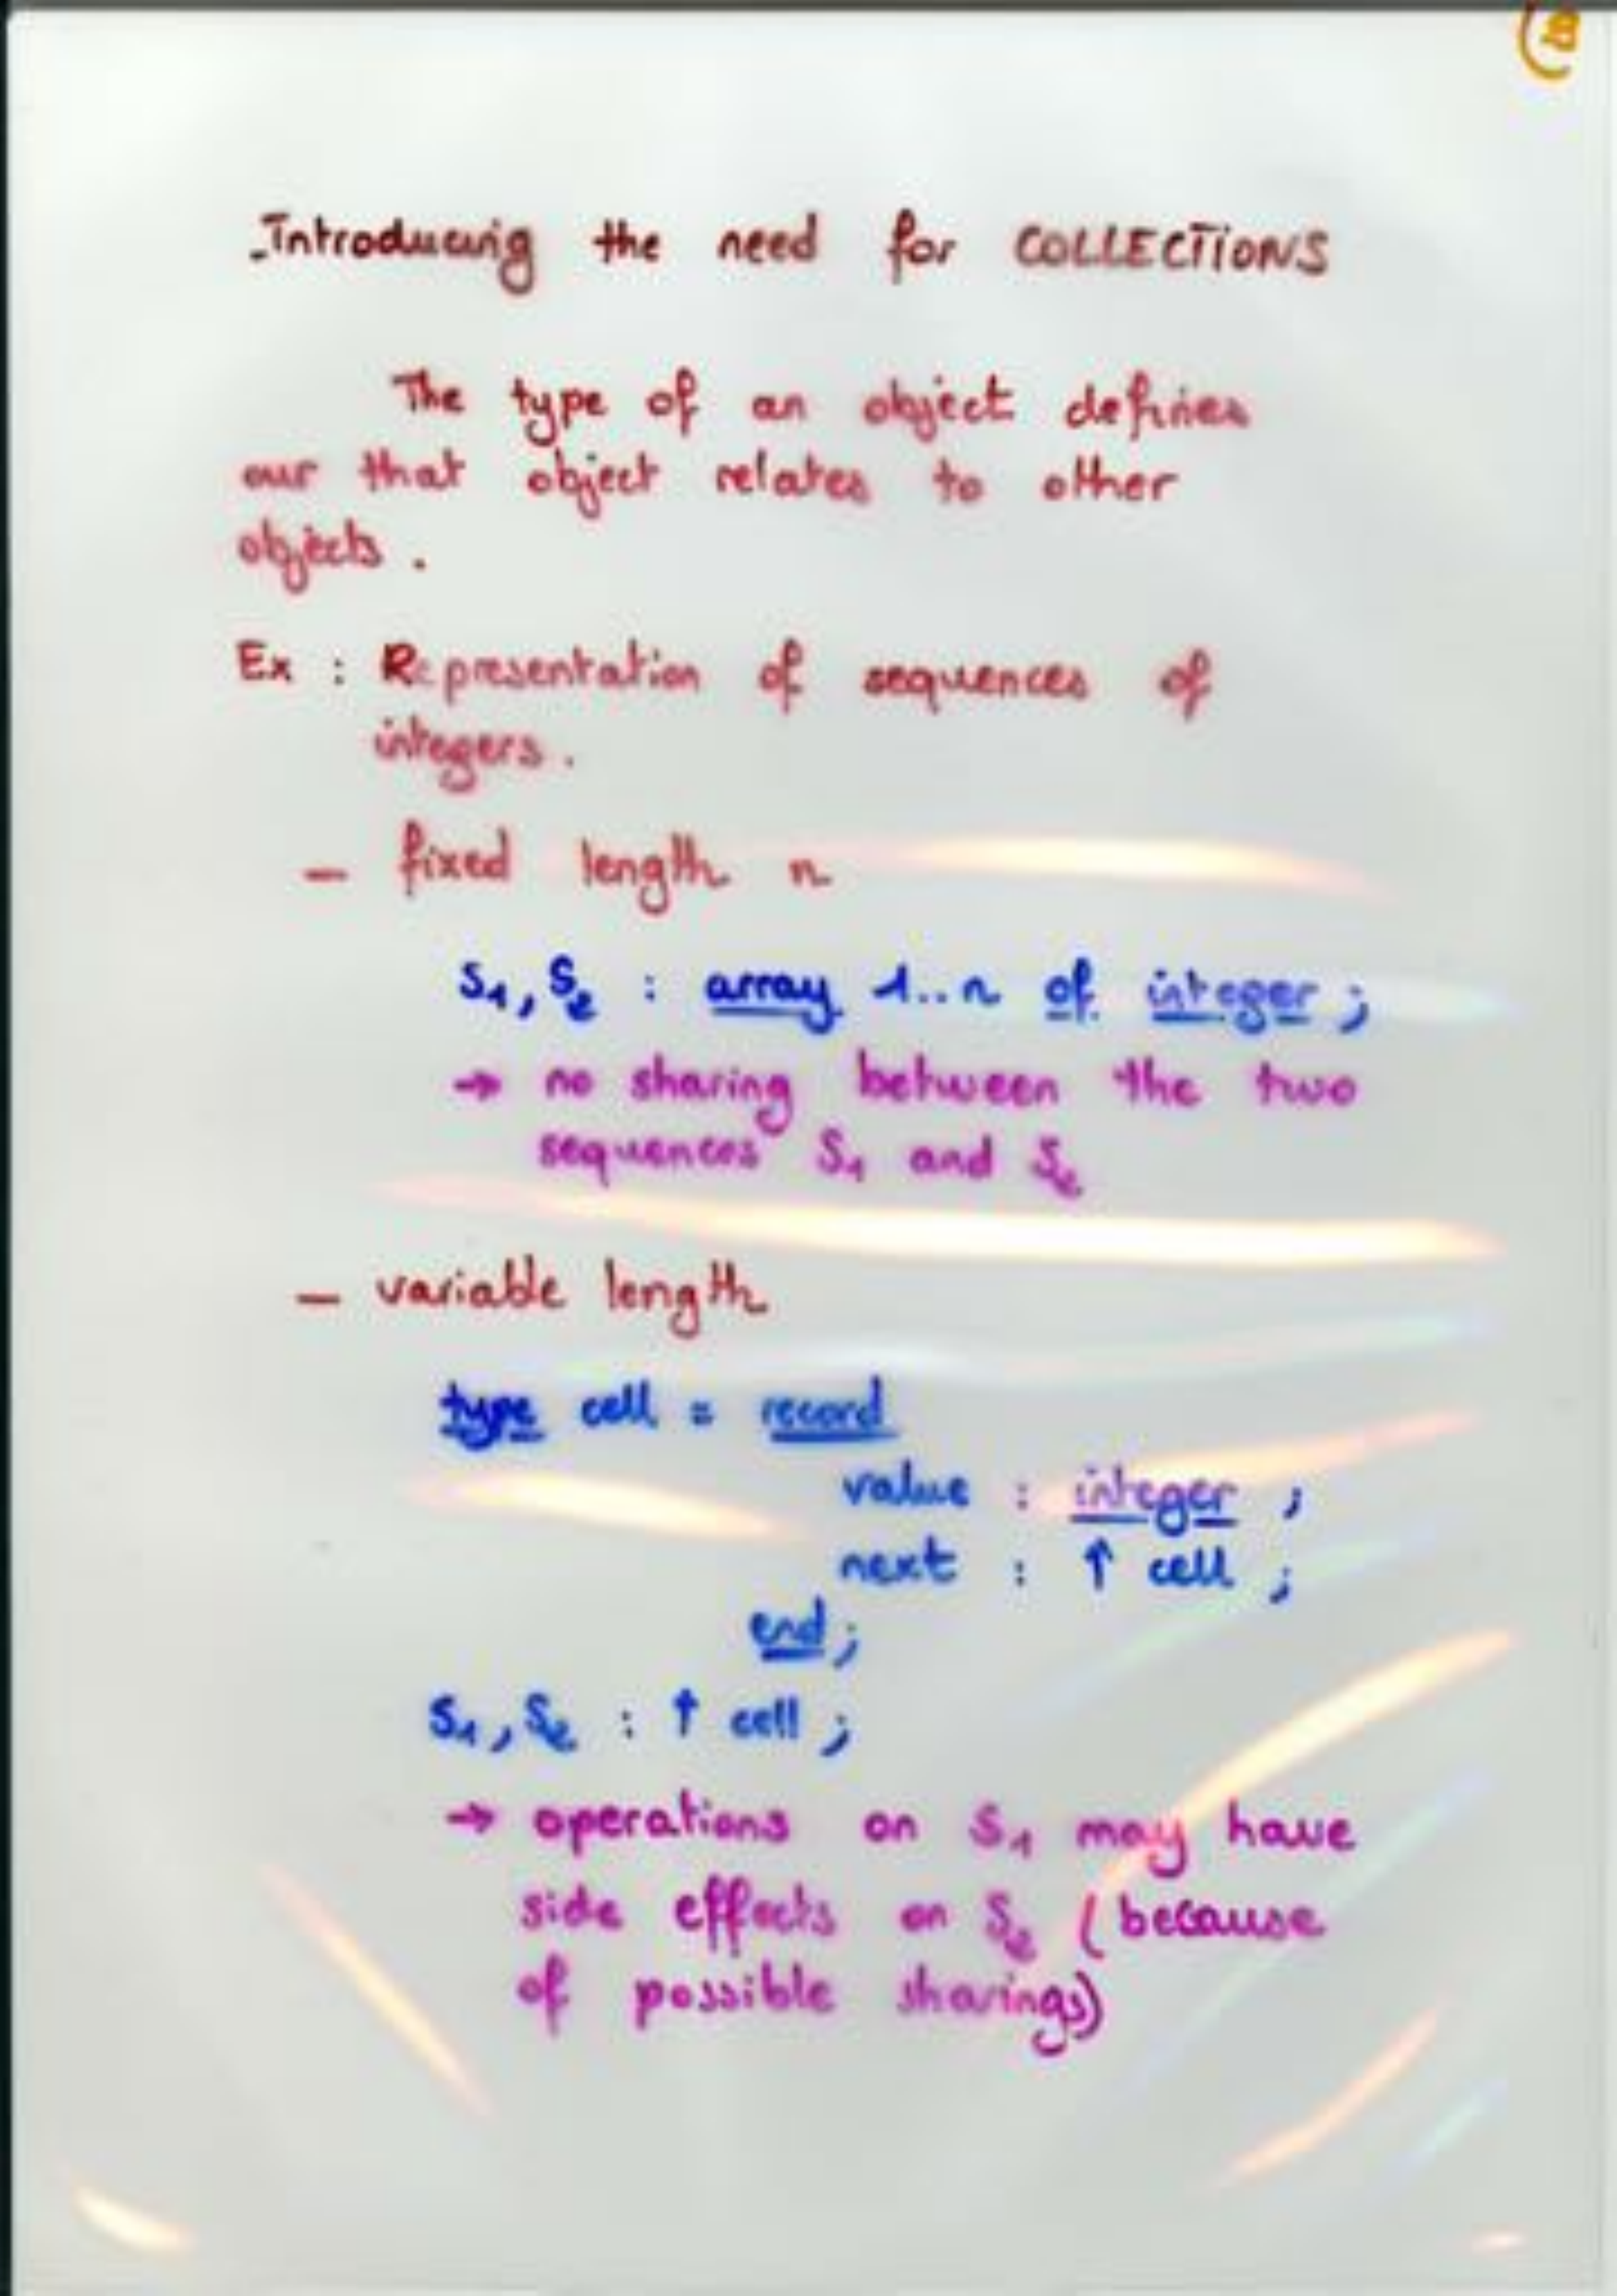 Introducing the need for COLLECTIONS
The type of an object defines
our that object relates to other
objects.
Ex : Representation of sequences of
integers.
— fixed length n
S1, S2 : array 1..n of integer ;
→ no sharing between the two
sequences S1 and S2
— variable length
type cell = record
value : integer ;
next : ↑ cell ;
end ;
S1, S2 : ↑ cell ;
→ operations on S1 may have
side effects on S2 (because
of possible sharings)